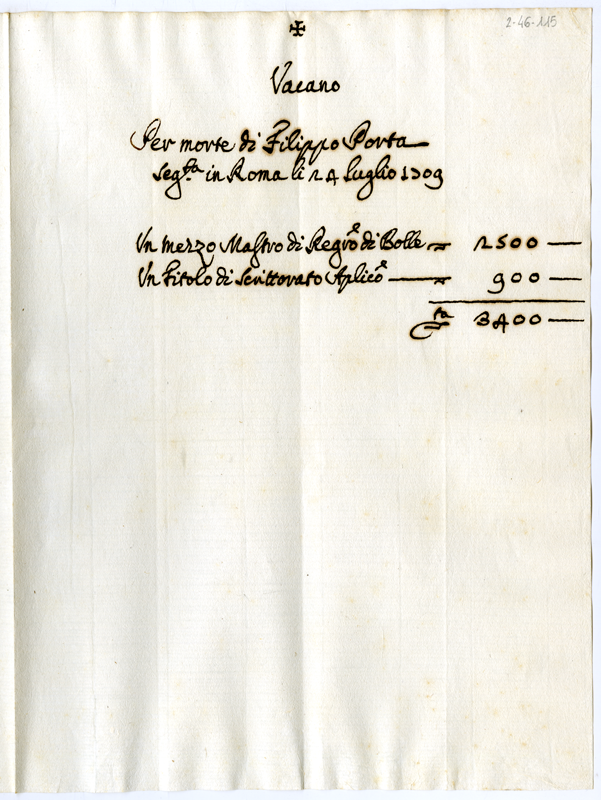 ✠
2-46-115
Vacano
Per morte di Filippo Porta
Seg.ta in Roma li 24 luglio 1709
Un mezzo Mastro di Regro di Bolle 2500
Un titolo di Scrittorato Aplico 900
3400